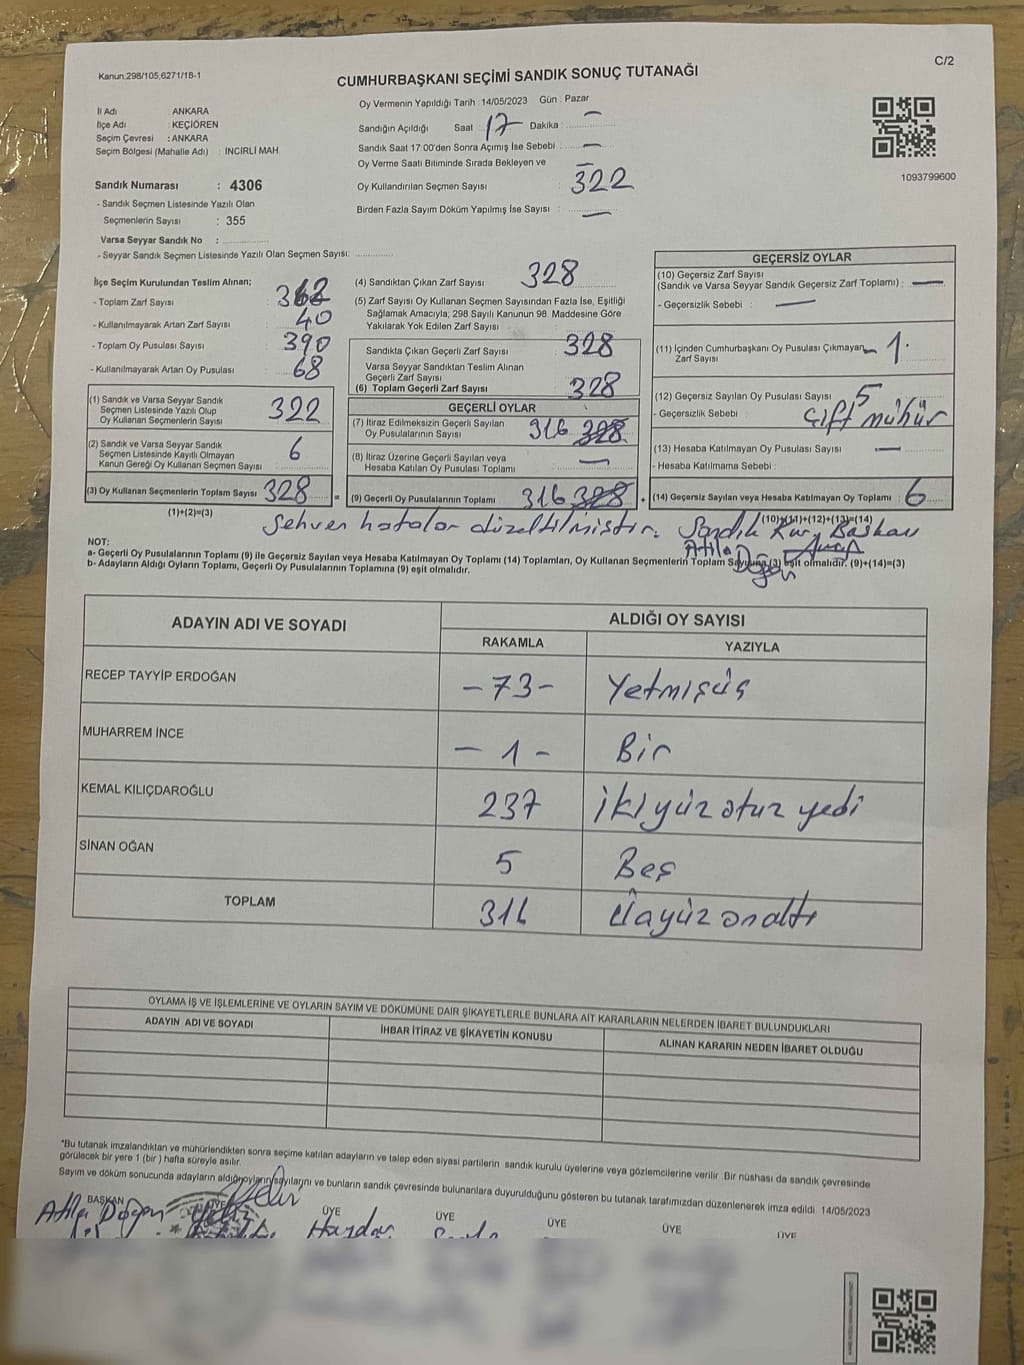 Kanun:298/105,6271/18-1
C/2
CUMHURBAŞKANI SEÇİMİ SANDIK SONUÇ TUTANAĞI
İl Adı : ANKARA
İlçe Adı : KEÇİÖREN
Seçim Çevresi : ANKARA
Seçim Bölgesi (Mahalle Adı) : İNCİRLİ MAH.
Sandık Numarası : 4306
- Sandık Seçmen Listesinde Yazılı Olan
Seçmenlerin Sayısı : 355
Varsa Seyyar Sandık No :
- Seyyar Sandık Seçmen Listesinde Yazılı Olan Seçmen Sayısı:
Oy Vermenin Yapıldığı Tarih :14/05/2023 Gün : Pazar
Sandığın Açıldığı Saat : 17 Dakika : —
Sandık Saat 17:00'den Sonra Açımış İse Sebebi : —
Oy Verme Saati Bitiminde Sırada Bekleyen ve
Oy Kullandırılan Seçmen Sayısı : 322
Birden Fazla Sayım Döküm Yapılmış İse Sayısı : —
1093799600
İlçe Seçim Kurulundan Teslim Alınan;
- Toplam Zarf Sayısı : 362
- Kullanılmayarak Artan Zarf Sayısı : 40
- Toplam Oy Pusulası Sayısı : 390
- Kullanılmayarak Artan Oy Pusulası : 68
(1) Sandık ve Varsa Seyyar Sandık
Seçmen Listesinde Yazılı Olup
Oy Kullanan Seçmenlerin Sayısı 322
(2) Sandık ve Varsa Seyyar Sandık
Seçmen Listesinde Kayıtlı Olmayan
Kanun Gereği Oy Kullanan Seçmen Sayısı 6
(3) Oy Kullanan Seçmenlerin Toplam Sayısı 328
(1)+(2)=(3)
(4) Sandıktan Çıkan Zarf Sayısı : 328
(5) Zarf Sayısı Oy Kullanan Seçmen Sayısından Fazla İse, Eşitliği
Sağlamak Amacıyla; 298 Sayılı Kanunun 98. Maddesine Göre
Yakılarak Yok Edilen Zarf Sayısı :
Sandıkta Çıkan Geçerli Zarf Sayısı : 328
Varsa Seyyar Sandıktan Teslim Alınan
Geçerli Zarf Sayısı
(6) Toplam Geçerli Zarf Sayısı : 328
GEÇERLİ OYLAR
(7) İtiraz Edilmeksizin Geçerli Sayılan
Oy Pusulalarının Sayısı : 316 328
(8) İtiraz Üzerine Geçerli Sayılan veya
Hesaba Katılan Oy Pusulası Toplamı : —
= (9) Geçerli Oy Pusulalarının Toplamı : 316 328 +
GEÇERSİZ OYLAR
(10) Geçersiz Zarf Sayısı
(Sandık ve Varsa Seyyar Sandık Geçersiz Zarf Toplamı) : —
- Geçersizlik Sebebi : —
(11) İçinden Cumhurbaşkanı Oy Pusulası Çıkmayan
Zarf Sayısı 1
(12) Geçersiz Sayılan Oy Pusulası Sayısı : 5
- Geçersizlik Sebebi : Çift mühür
(13) Hesaba Katılmayan Oy Pusulası Sayısı : —
- Hesaba Katılmama Sebebi :
(14) Geçersiz Sayılan veya Hesaba Katılmayan Oy Toplamı : 6
(10)+(11)+(12)+(13)=(14)
Sehven hatalar düzeltilmiştir. Sandık Kur. Başkanı
Atila Doğan
NOT:
a- Geçerli Oy Pusulalarının Toplamı (9) ile Geçersiz Sayılan veya Hesaba Katılmayan Oy Toplamı (14) Toplamları, Oy Kullanan Seçmenlerin Toplam Sayısına (3) eşit olmalıdır. (9)+(14)=(3)
b- Adayların Aldığı Oyların Toplamı, Geçerli Oy Pusulalarının Toplamına (9) eşit olmalıdır.
ADAYIN ADI VE SOYADI
ALDIĞI OY SAYISI
RAKAMLA YAZIYLA
RECEP TAYYİP ERDOĞAN -73- Yetmişüç
MUHARREM İNCE - 1 - Bir
KEMAL KILIÇDAROĞLU 237 İkiyüz otuz yedi
SİNAN OĞAN 5 Beş
TOPLAM 316 Üçyüz onaltı
OYLAMA İŞ VE İŞLEMLERİNE VE OYLARIN SAYIM VE DÖKÜMÜNE DAİR ŞİKAYETLERLE BUNLARA AİT KARARLARIN NELERDEN İBARET BULUNDUKLARI
ADAYIN ADI VE SOYADI İHBAR İTİRAZ VE ŞİKAYETİN KONUSU ALINAN KARARIN NEDEN İBARET OLDUĞU
*Bu tutanak imzalandıktan ve mühürlendikten sonra seçime katılan adayların ve talep eden siyasi partilerin sandık kurulu üyelerine veya gözlemcilerine verilir. Bir nüshası da sandık çevresinde
görülecek bir yere 1 (bir) hafta süreyle asılır.
Sayım ve döküm sonucunda adayların aldığı oyların sayılarını ve bunların sandık çevresinde bulunanlara duyurulduğunu gösteren bu tutanak tarafımızdan düzenlenerek imza edildi. 14/05/2023
BAŞKAN ÜYE ÜYE ÜYE ÜYE ÜYE ÜYE
Atila Doğan